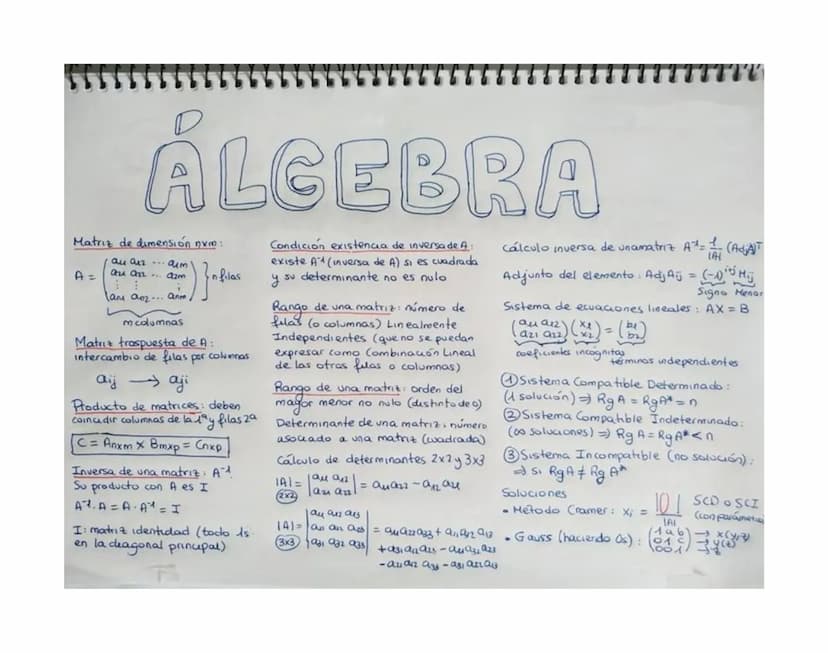 ÁLGEBRA
Matriz de dimensión nxm:
A = (a11 a12 ... a1m
a21 a22 ... a2m
⋮ ⋮ ⋮
an1 an2 ... anm) } n filas
m columnas
Matriz traspuesta de A:
intercambio de filas por columnas
aij → aji
Producto de matrices: deben
coincidir columnas de la 1ª y filas 2ª
C = Anxm x Bmxp = Cnxp
Inversa de una matriz: A⁻¹.
Su producto con A es I
A⁻¹·A = A·A⁻¹ = I
I: matriz identidad (todo 1s
en la diagonal principal)
Condición existencia de inversa de A:
existe A⁻¹ (inversa de A) si es cuadrada
y su determinante no es nulo
Rango de una matriz: número de
filas (o columnas) Linealmente
Independientes (que no se puedan
expresar como Combinación Lineal
de las otras filas o columnas)
Rango de una matriz: orden del
mayor menor no nulo (distinto de 0)
Determinante de una matriz: número
asociado a una matriz (cuadrada)
Cálculo de determinantes 2x2 y 3x3
|A| =
2x2
|A| =
3x3
Cálculo inversa de una matriz A⁻¹ = 1/|A| (AdjA)ᵀ
Adjunto del elemento: AdjAij = (-1)ⁱ⁺ʲ Mij
Signo Menor
Sistema de ecuaciones lineales: AX = B
(a11 a12
a21 a22) (x1
x2) = (b1
b2)
coeficientes incógnitas términos independientes
① Sistema Compatible Determinado:
(1 solución) ⇒ RgA = RgA* = n
② Sistema Compatible Indeterminado:
(∞ soluciones) ⇒ RgA = RgA* < n
③ Sistema Incompatible (no solución):
⇒ si RgA ≠ RgA*
Soluciones
• Método Cramer: xi = | |/|A| SCD o SCI
• Gauss (haciendo 0s): (1 a b → x(y,z)
0 1 c → y(z)
0 0 1) → z